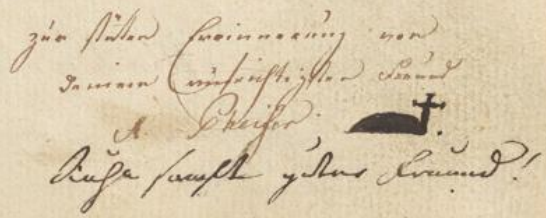 zur stäten Erinnerung von
Deinem aufrichtigsten Freund
Ruhe sanft guter Freund!